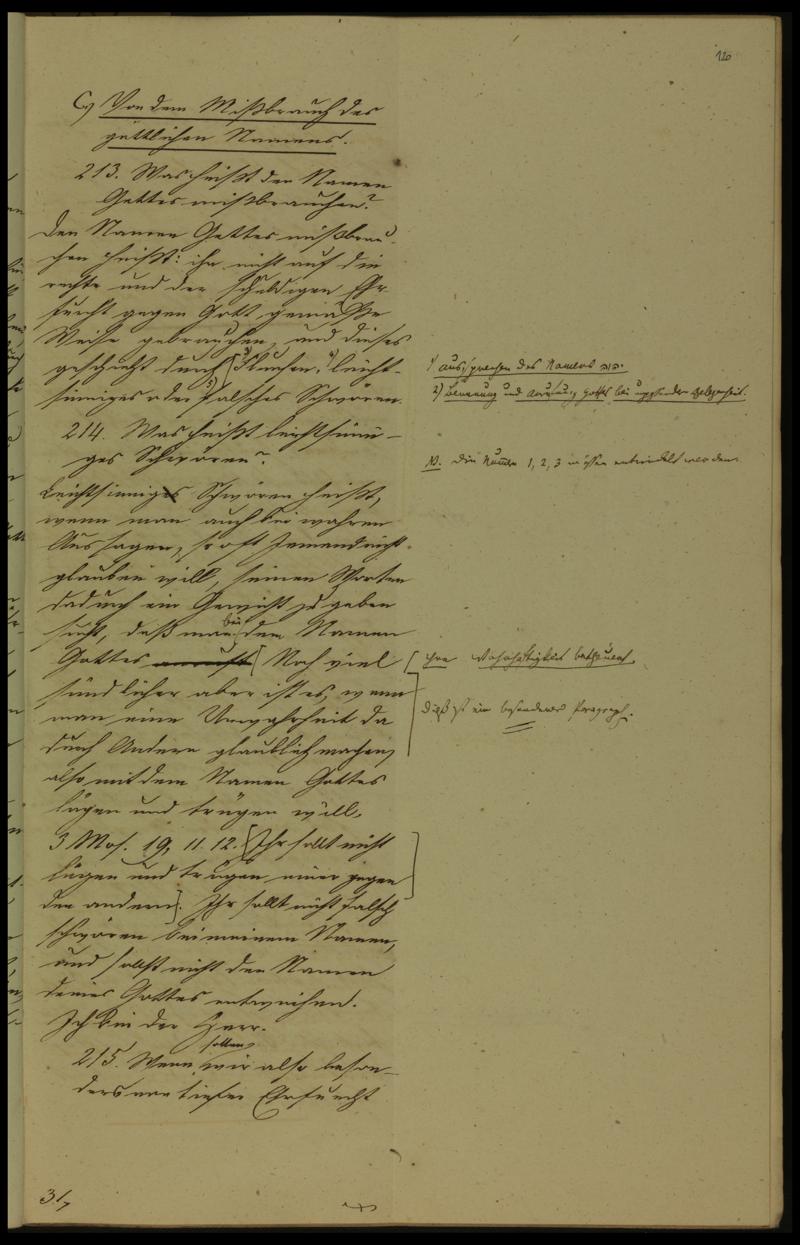 120
C) Von dem Mißbrauch des
göttlichen Namens.
213. Was heißt den Namen
Gottes mißbrauchen?
Den Namen Gottes mißbrau-
chen heißt: ihn nicht auf die
rechte und der schuldigen Ehr-
furcht gegen Gott gemäße
Weise gebrauchen, und dieses
geschieht durch Fluchen, leicht-
sinniges oder falsches Schwören.
214. Was heißt leichtsinni-
ges Schwören?
Leichtsinniges Schwören heißt,
wenn man auch bei wahren
Aussagen, so oft Jemand nicht
glauben will, seinen Worten
dadurch ein Gewicht zu geben
sucht, daß man bei dem Namen
Gottes anruft [Noch viel
sündlicher aber ist es, wenn
man eine Unwahrheit da
durch Andern glaublich machen,
also mit dem Namen Gottes
lügen und trügen will.
3 Mos. 19, 11. 12. [Ihr sollt nicht
lügen und trügen einer gegen
den andern]. Ihr sollt nicht falsch
schwören bei meinem Namen,
und sollst nicht den Namen
deines Gottes entweihen.
Ich bin der Herr.
215. Wenn wir also beson-
sollen
ders von tiefer Ehrfurcht
31,
1) Aussprechen des Namens
2) Benennung und Anrufung Gottes bei Gelegenheit.
NB. Die Numern 1, 2, 3 müssen entwickelt werden
[ihre Wahrhaftigkeit betheuert.
dieß ist ein besonderer Paragraph.